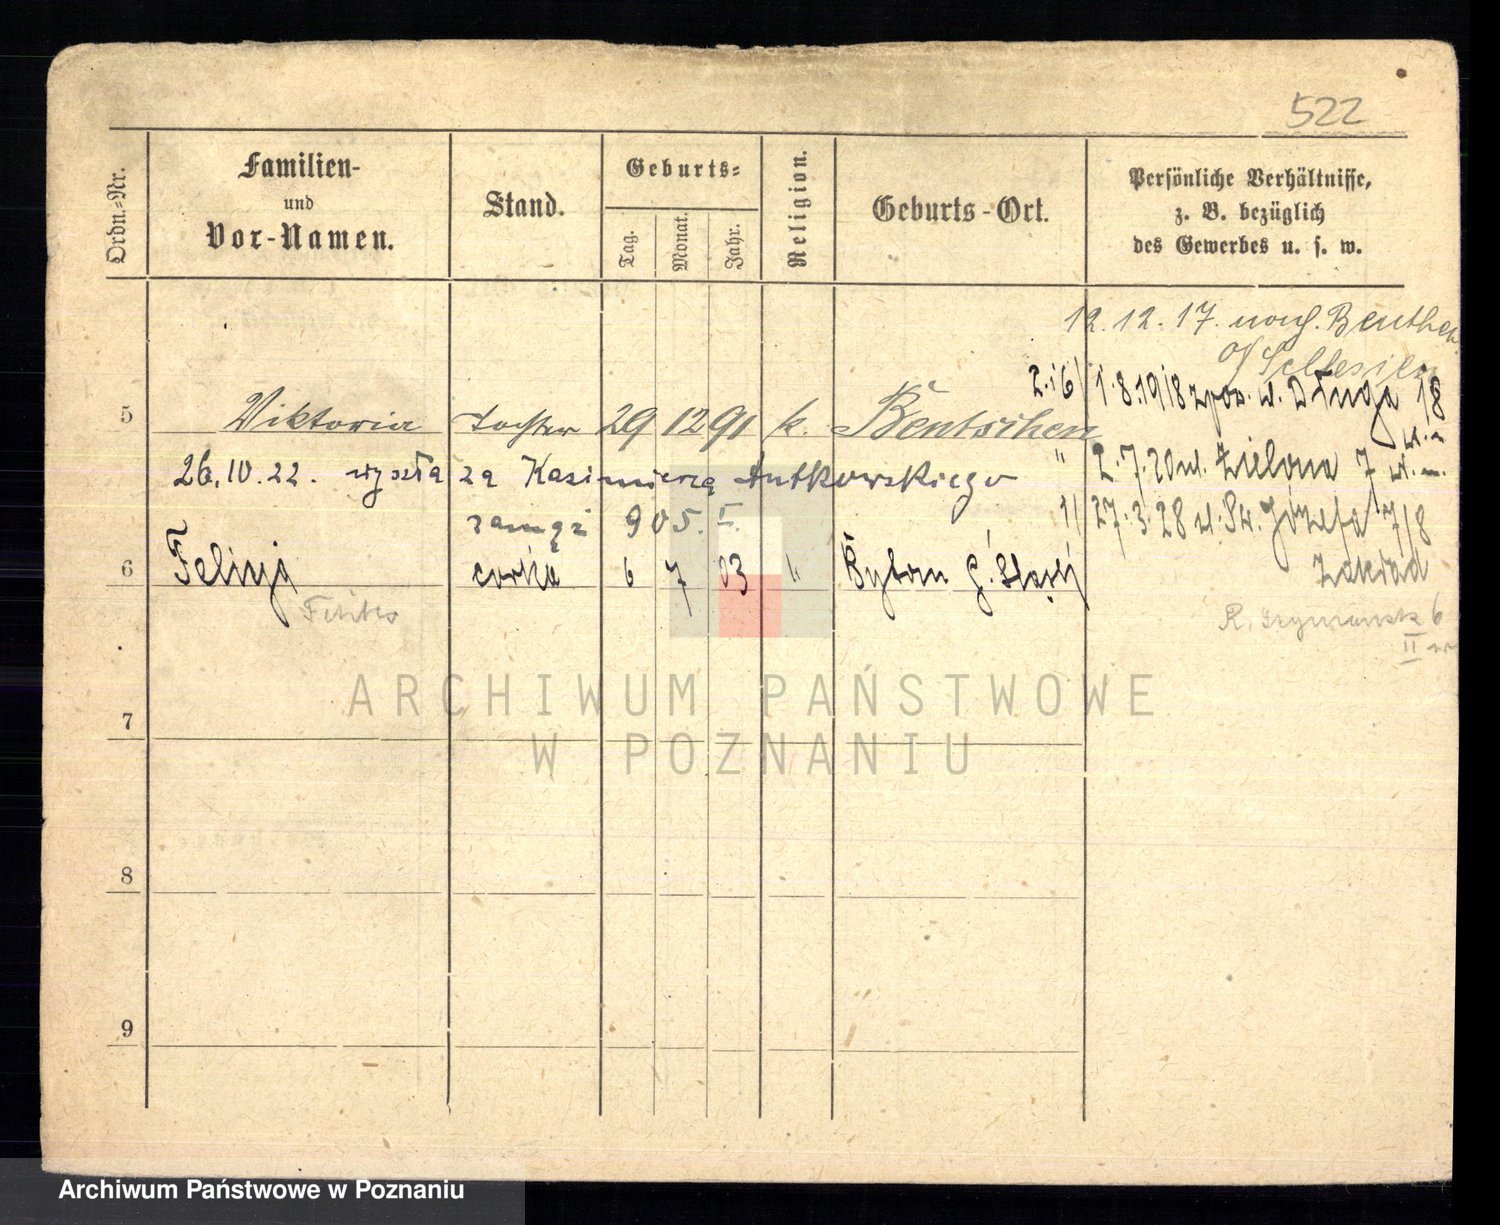 522
Ordn.-Nr.
Familien-
und
Vor-Namen.
Stand.
Geburts-
Tag.
Monat.
Jahr.
Religion.
Geburts-Ort.
Persönliche Verhältnisse,
z. B. bezüglich
des Gewerbes u. s. w.
12.12.17. nach Beuthen
O/Schlesien
2 i 6/ 1.8.1918 z poz. w. Długa 18
w.m.
5 Viktoria Tochter 29 12 91 k. Bentschen
" 2.7.20 ul. Zielona 7 w.m.
26.10.22. wyszła za Kazimierza Antkowskiego
zamąż 905. I.
1/ 27.3.28 ul. Św. Józefa 7/8
Zakład
6 Felicja córka 6 7 03 " Bytom G. Śląsk
R. Szymańsk 6
II
7
8
9
ARCHIWUM PAŃSTWOWE
W POZNANIU
Archiwum Państwowe w Poznaniu